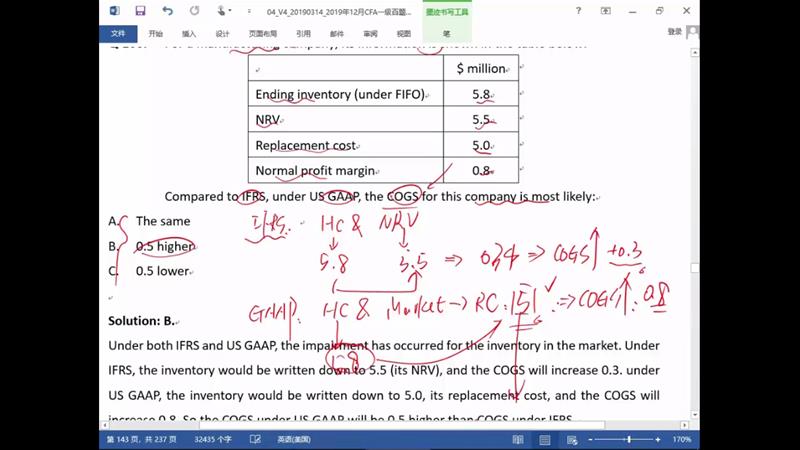 04_V4_20190314_2019年12月CFA一级百题...
墨迹书写工具
登录
文件 开始 插入 设计 页面布局 引用 邮件 审阅 视图 笔
$ million
Ending inventory (under FIFO) 5.8
NRV 5.5
Replacement cost 5.0
Normal profit margin 0.8
Compared to IFRS, under US GAAP, the COGS for this company is most likely:
A. The same
B. 0.5 higher
C. 0.5 lower
IFRS. HC & NRV
5.8 5.5 ⇒ 0.3 ⇒ COGS↑ +0.3
GAAP: HC & Market → RC: 5 ✓ ⇒ COGS↑: 0.8
Solution: B.
Under both IFRS and US GAAP, the impairment has occurred for the inventory in the market. Under
IFRS, the inventory would be written down to 5.5 (its NRV), and the COGS will increase 0.3. under
US GAAP, the inventory would be written down to 5.0, its replacement cost, and the COGS will
increase 0.8. So the COGS under US GAAP will be 0.5 higher than COGS under IFRS.
第 143 页，共 237 页 32435 个字 英语(美国) 170%